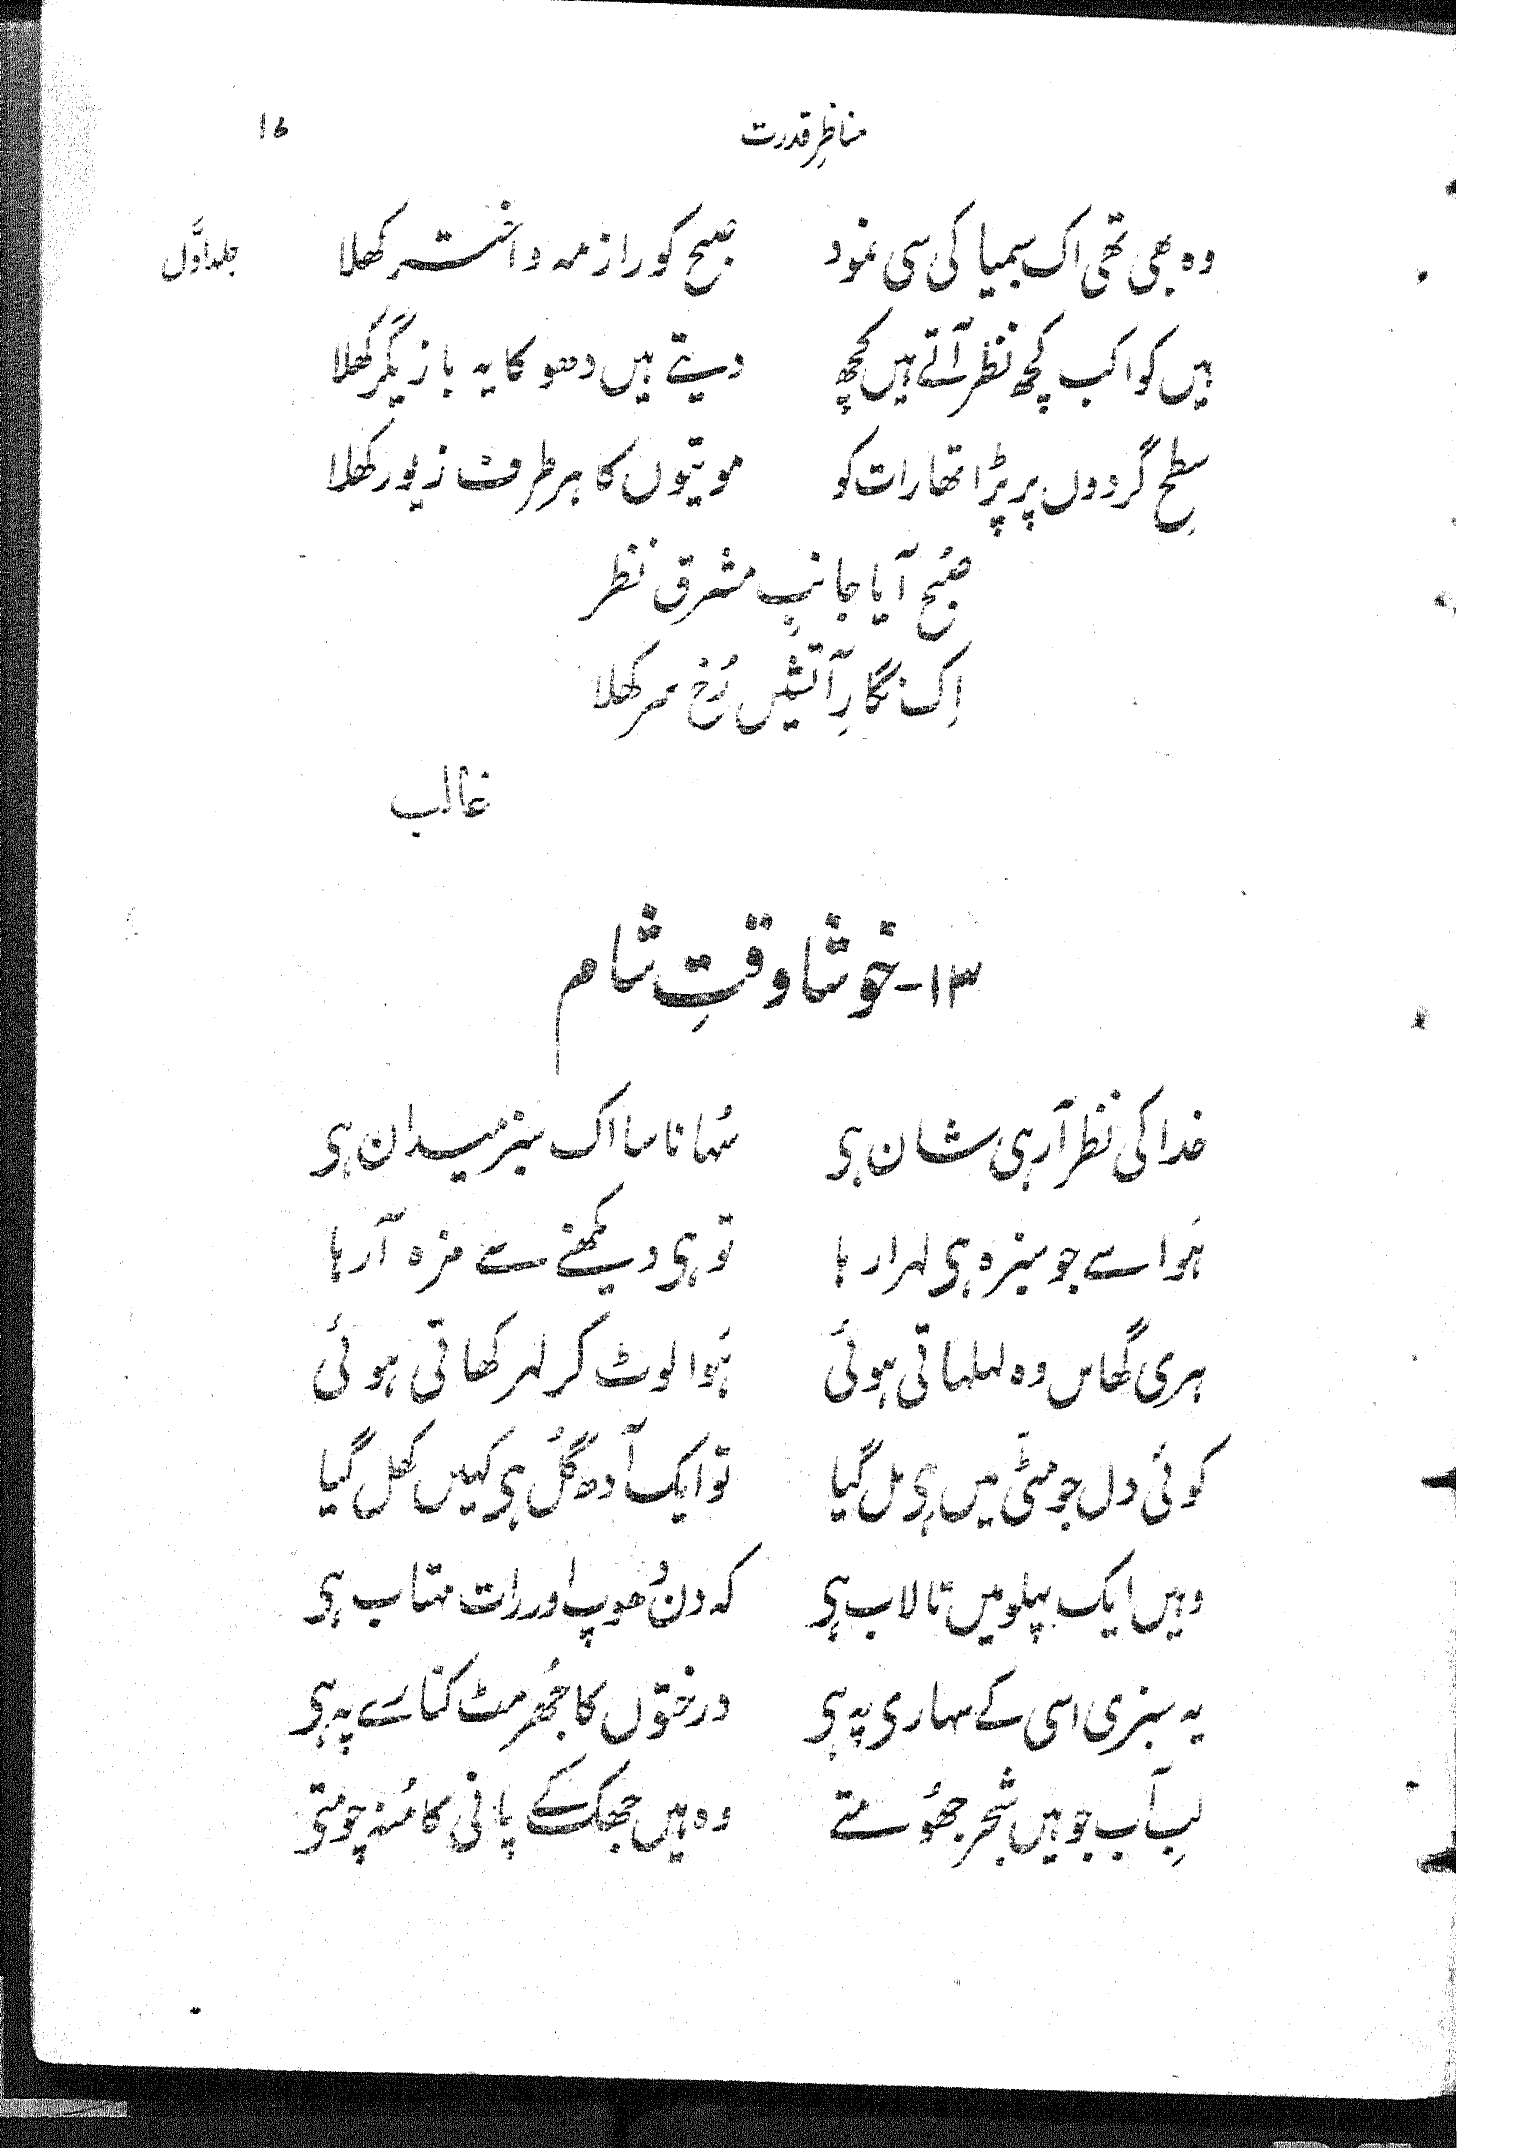 مناظرِ قدرت
۱۶
جلد اوّل
وہ بھی تھی اک سیمیا کی سی نمود صبح کو راز مہ و اختر کھلا
ہیں کواکب کچھ نظر آتے ہیں کچھ دیتے ہیں دھوکا یہ بازیگر کھلا
سطحِ گردوں پر پڑا تھا رات کو موتیوں کا ہر طرف زیور کھلا
صُبح آیا جانبِ مشرق نظر
اِک نگارِ آتشیں رُخ سر کھلا
غالب
۱۳- خوشا وقتِ شام
خدا کی نظر آرہی شان ہی سُہانا سا اک سبز میدان ہی
ہَوا سے جو سبزہ ہی لہرا رہا تو ہی دیکھنے سے مزہ آ رہا
ہری گھاس وہ لہلہاتی ہوئی ہَوا لوٹ کر لہر کھاتی ہوئی
کوئی دل جو مٹّی میں ہی مل گیا تو ایک آدھ گُل ہی کہیں کھل گیا
وہیں ایک پہلو میں تالاب ہی کہ دن دُھوپ اور رات مہتاب ہی
یہ سبزی اسی کے سہاری پہ ہی درختوں کا جُھرمٹ کنارے پہ ہی
لبِ آب جو ہیں شجر جھُومتے وہ ہیں جھک کے پانی کا مُنہ چومتی